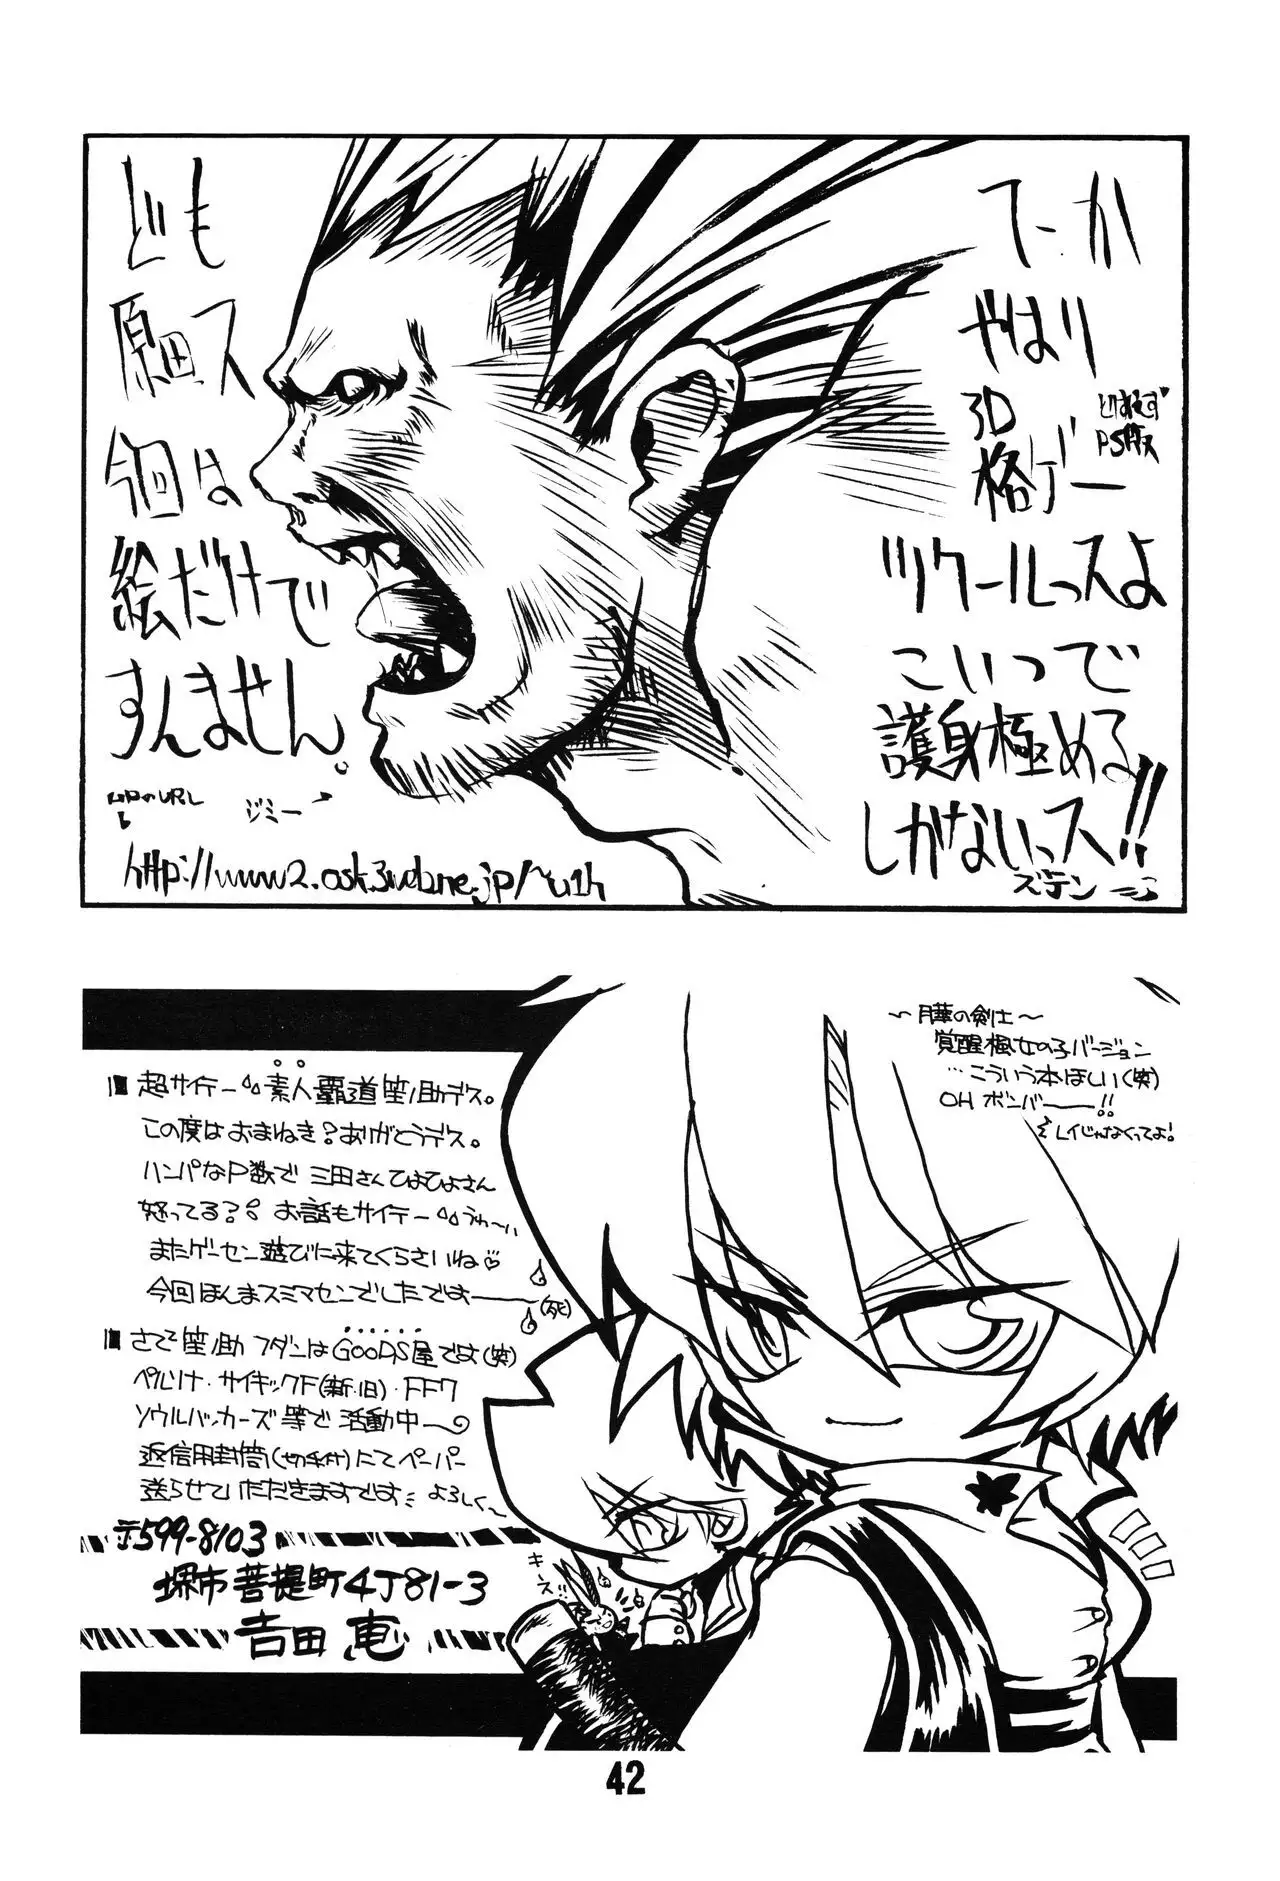 ども
原田ス
今回は
絵だけで
すんません。
HPのURL
ジミー
http://www2.osk.3web.ne.jp/~u1h
てーか
やはり
3D
格ゲー
とりあえず
PS版
ツクールっスよ
こいつで
護身極める
しがないっス!!
ズデン
~月華の剣士~
覚醒楓女の子バージョン
…こういう本ほしい(笑)
OH ボンバーー!!
レイじゃなくってよ!
超サイテー 素人覇道笙ノ助デス。
この度はおまねき?ありがとうデス。
ハンパなP数で 三田さん
怒ってる? お話もサイテー うわ~
またゲーセン遊びに来てくださいね♡
今回ほんまスミマセンでしたですーー(死)
さて笙ノ助 フダンはGOODS屋です(笑)
ペルソナ・サイキックF(新・旧)・FF7
ソウルハッカーズ等で活動中~
返信用封筒(切手付)にてペーパー
送らせていただきますです よろしく~
〒599-8103
堺市菩提町4丁81-3
吉田 恵
キーズ
42